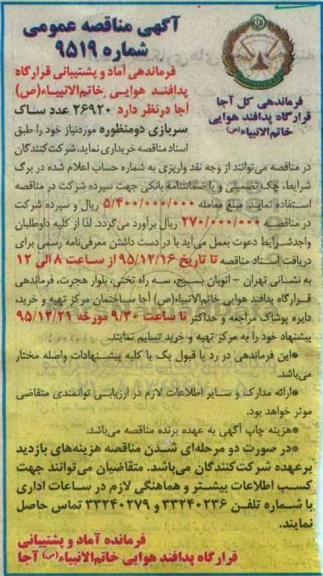 آگهی مناقصه عمومی
شماره ۹۵۱۹
فرماندهی کل آجا
قرارگاه پدافند هوایی
خاتم‌الانبیاء(ص)
فرماندهی آماد و پشتیبانی قرارگاه
پدافند هوایی خاتم‌الانبیاء(ص)
آجا درنظر دارد ۲۶۹۲۰ عدد ساک
سربازی دومنظوره موردنیاز خود را طبق
اسناد مناقصه خریداری نماید. شرکت‌کنندگان
در مناقصه می‌توانند از وجه نقد واریزی به شماره حساب اعلام شده در برگ
شرایط، چک تضمینی و یا ضمانتنامه بانکی جهت سپرده شرکت در مناقصه
استفاده نمایند. مبلغ معامله ۵/۴۰۰/۰۰۰/۰۰۰ ریال و سپرده شرکت
در مناقصه ۲۷۰/۰۰۰/۰۰۰ ریال برآورد می‌گردد. لذا از کلیه داوطلبان
واجدشرایط دعوت بعمل می‌آید با در دست داشتن معرفی‌نامه رسمی برای
دریافت اسناد مناقصه تا تاریخ ۹۵/۱۲/۱۶ از ساعت ۸ الی ۱۲
به نشانی تهران - اتوبان بسیج، سه راه تختی، بلوار هجرت، فرماندهی
قرارگاه پدافند هوایی خاتم‌الانبیاء(ص) آجا ساختمان مرکز تهیه و خرید،
دایره پوشاک مراجعه و حداکثر تا ساعت ۹/۳۰ مورخه ۹۵/۱۲/۲۱
پیشنهاد خود را به مرکز تهیه و خرید تسلیم نمایند.
*این فرماندهی در رد یا قبول یک یا کلیه پیشنهادات واصله مختار
می‌باشد.
*ارائه مدارک و سایر اطلاعات لازم در ارزیابی توانمندی متقاضی
موثر خواهد بود.
*هزینه چاپ آگهی به عهده برنده مناقصه می‌باشد.
*در صورت دو مرحله‌ای شدن مناقصه هزینه‌های بازدید
برعهده شرکت‌کنندگان می‌باشد. متقاضیان می‌توانند جهت
کسب اطلاعات بیشتر و هماهنگی لازم در ساعات اداری
با شماره تلفن ۳۳۲۴۰۲۳۶ و ۳۳۲۴۰۲۷۹ تماس حاصل
نمایند.
فرمانده آماد و پشتیبانی
قرارگاه پدافند هوایی خاتم‌الانبیاء(ص) آجا